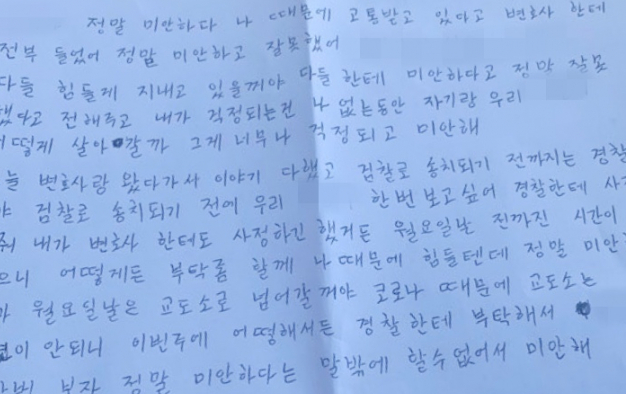 정말 미안하다 나 때문에 고통받고 있다고 변호사 한테
전부 들었어 정말 미안하고 잘못했어
다들 힘들게 지내고 있을꺼야 다들 한테 미안하다고 정막 잘못
했다고 전해주고 내가 걱정되는건 나 없는동안 자기랑 우리
어떻게 살아갈까 그게 너무나 걱정되고 미안해
늘 변호사랑 왔다가서 이야기 다했고 검찰로 송치되기 전까지는 경찰
야 검찰로 송치되기 전에 우리 한번 보고싶어 경찰한테 사
줘 내가 변호사 한테도 사정하긴 했거든 월요일날 전까진 시간이
으니 어떻게든 부탁롬 할께 나때문에 힘들텐데 정말 미안
월요일날은 교도소로 넘어갈꺼야 코로나 때문에 교도소는
이 안되니 이번주에 어떻해서든 경찰한테 부탁해서
보자 정말 미안하다는 말밖에 할수없어서 미안해